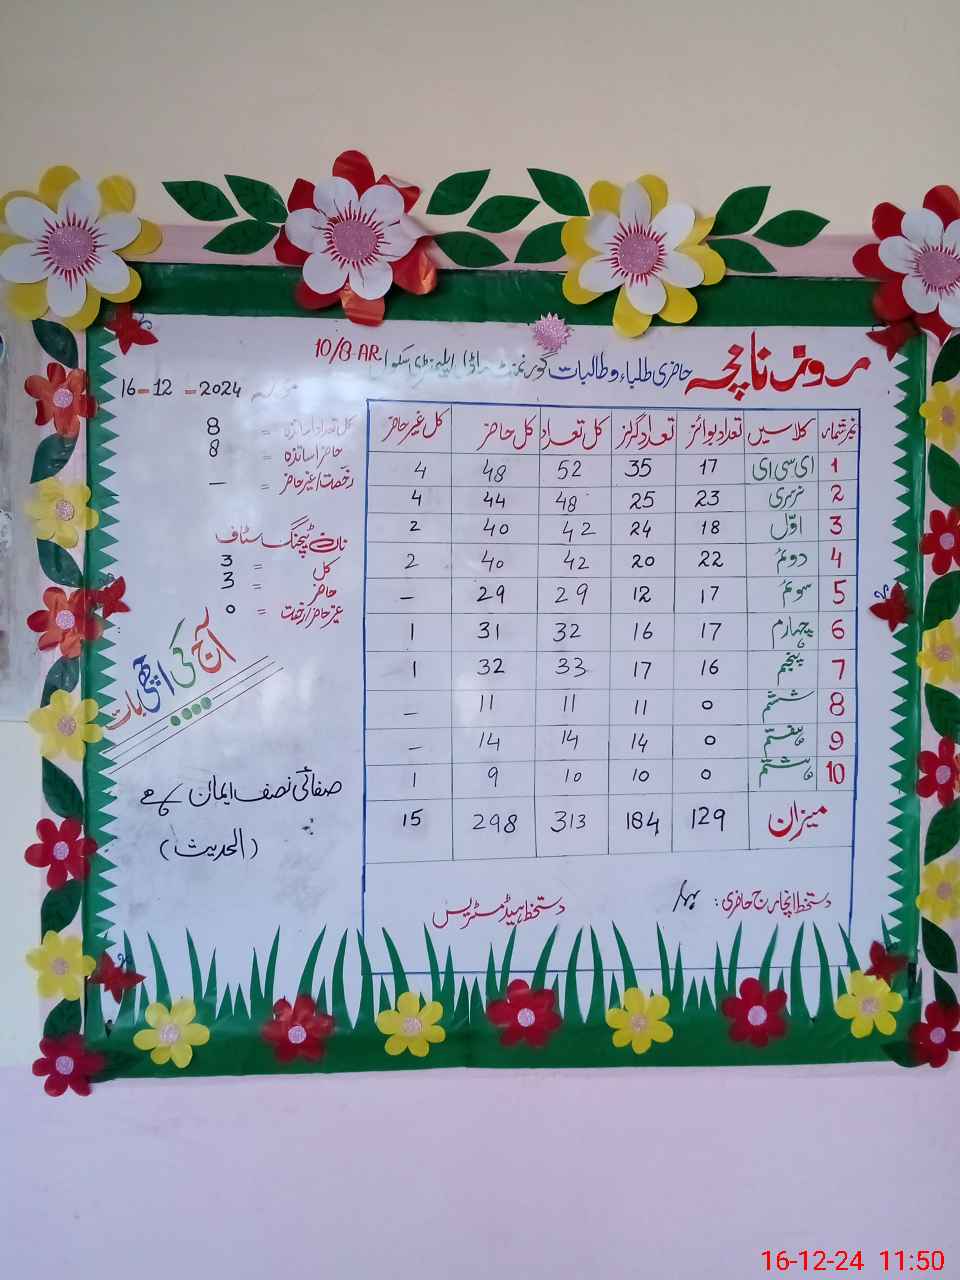 روزنامچہ حاضری طلباء و طالبات گورنمنٹ ماڈل ایلیمنٹری سکول 10/8-AR
مورخہ 16-12-2024
نمبر شمار کلاسیں تعداد بوائز تعداد گرلز کل تعداد کل حاضر کل غیر حاضر
1 ای سی ای 17 35 52 48 4
2 نرسری 23 25 48 44 4
3 اوّل 18 24 42 40 2
4 دوئم 22 20 42 40 2
5 سوئم 17 12 29 29 -
6 چہارم 17 16 32 31 1
7 پنجم 16 17 33 32 1
8 ششم 0 11 11 11 -
9 ہفتم 0 14 14 14 -
10 ہشتم 0 10 10 9 1
میزان 129 184 313 298 15
دستخط انچارج حاضری:
دستخط ہیڈ مسٹریس
کل تعداد اساتذہ = 8
حاضر اساتذہ = 8
رخصت/غیر حاضر = -
نان ٹیچنگ سٹاف
کل = 3
حاضر = 3
غیر حاضر/رخصت = 0
آج کی اچھی بات
صفائی نصف ایمان ہے
(الحدیث)
16-12-24 11:50